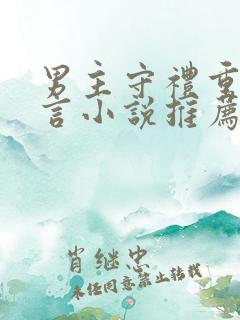 男主守禮重
言小說推薦
肖继忠
未经同意禁止转载